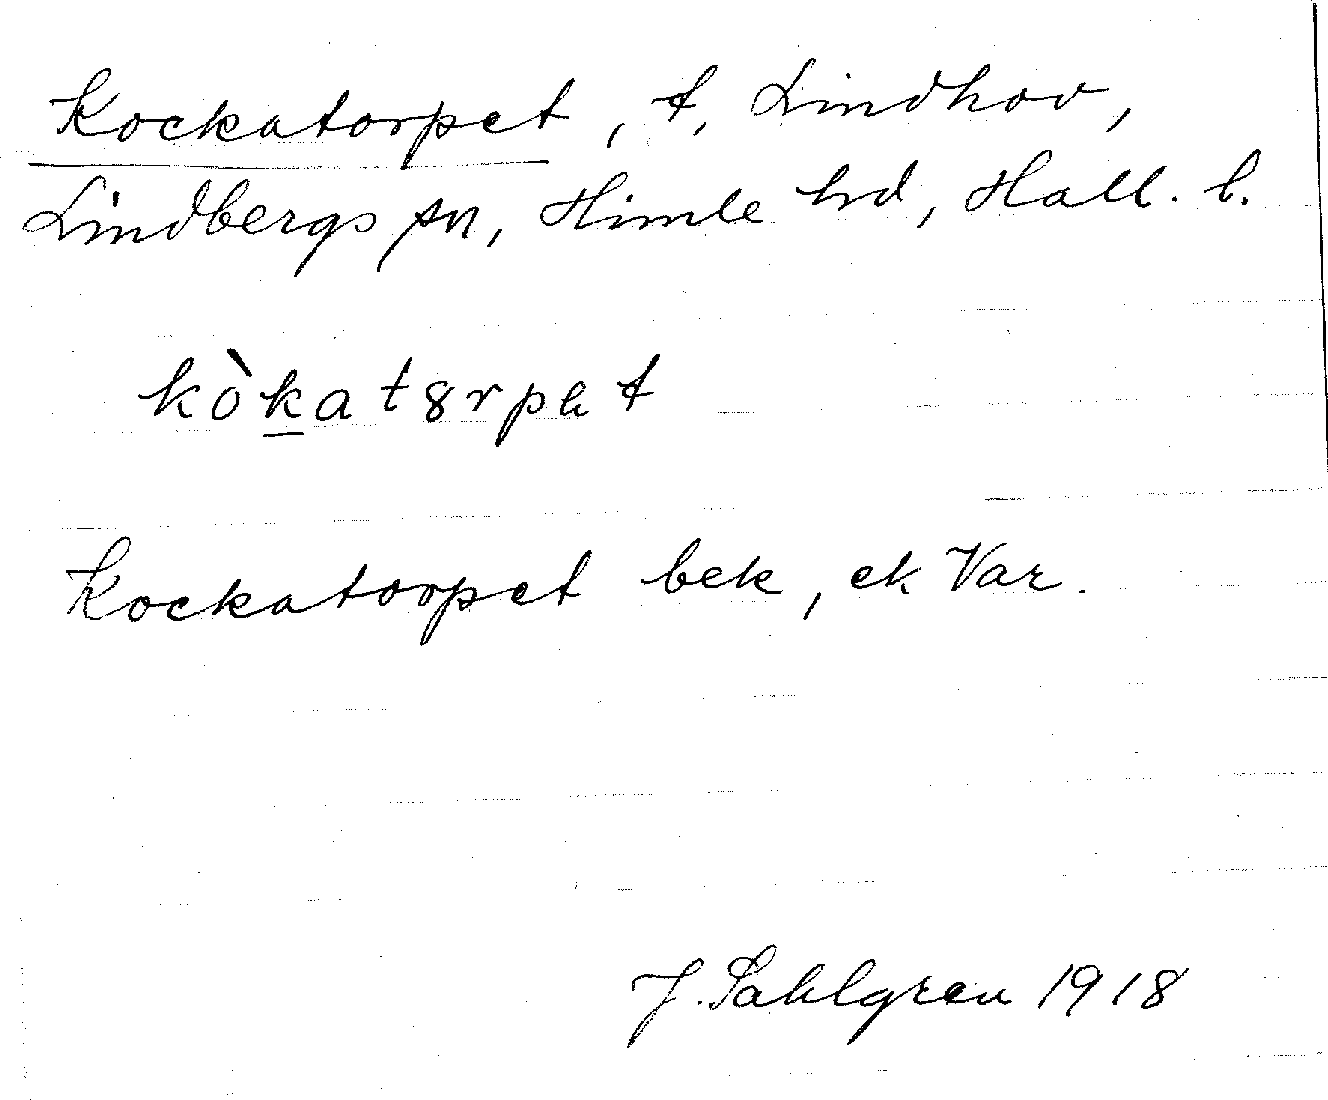 Kockatorpet, t, Lindhov,
Lindbergs sn, Himle hd, Hall. l.
kòk̲at8rpət
Kockatorpet bek, ek Var.
J. Sahlgren 1918